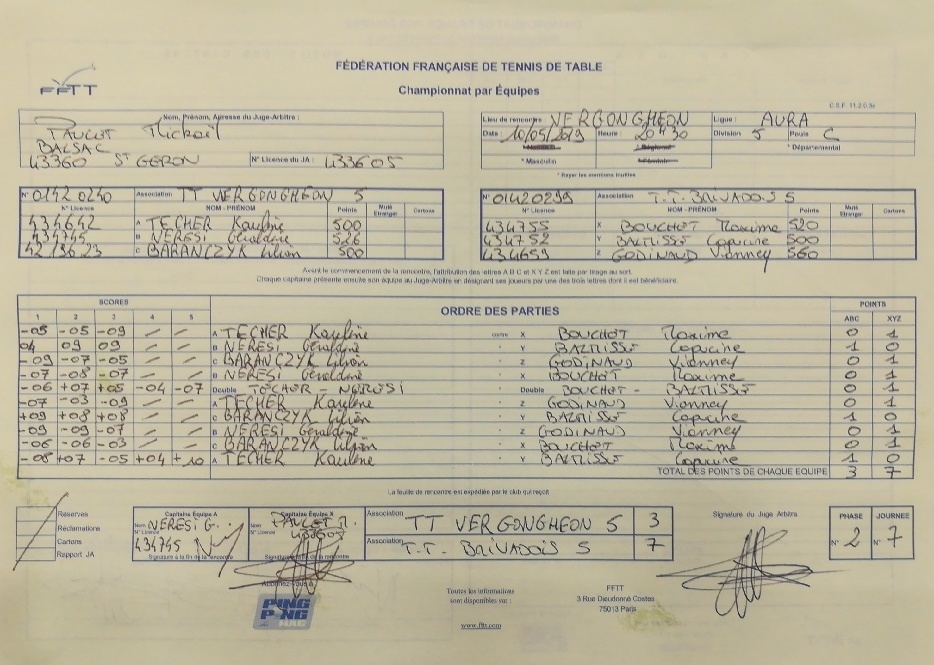 FÉDÉRATION FRANÇAISE DE TENNIS DE TABLE
Championnat par Équipes
FFTT
C.S.F. 11.2.0.3a
Nom, Prénom, Adresse du Juge-Arbitre :
PAULET Mickaël
BALSAC
43360 ST GERON
N° Licence du JA : 433605
Lieu de rencontre VERGONGHEON
Date : 10/05/2019 Heure : 20 H 30
* Masculin
Ligue : AURA
Division 5 Poule C
* Départemental
* Rayer les mentions inutiles
N° 01420240 Association TT VERGONGHEON 5
N° Licence NOM - PRÉNOM Points Muté Etranger Cartons
434642 A TECHER Kaylène 500
434745 B NERESI Géraldine 526
C BARANCZYK Lilian 500
N° 01420299 Association T.T. BRIVADOIS 5
N° Licence NOM - PRÉNOM Points Muté Etranger Cartons
434755 X BOUCHOT Maxime 520
434752 Y BALMISSE Capucine 500
434659 Z GODINAUD Vianney 560
Avant le commencement de la rencontre, l'attribution des lettres A B C et X Y Z est faite par tirage au sort.
Chaque capitaine présente ensuite son équipe au Juge-Arbitre en désignant ses joueurs par une des trois lettres dont il est bénéficiaire.
SCORES ORDRE DES PARTIES POINTS
1 2 3 4 5 ABC XYZ
-05 -05 -09 / / A TECHER Kaylène contre X BOUCHOT Maxime 0 1
04 09 09 / / B NERESI Géraldine " Y BALMISSE Capucine 1 0
-09 -07 -05 / / C BARANCZYK Lilian " Z GODINAUD Vianney 0 1
-07 -08 -07 / / B NERESI Géraldine " X BOUCHOT Maxime 0 1
-06 +07 +05 -04 -07 Double TECHER - NERESI Double BOUCHOT - BALMISSE 0 1
-07 -03 -09 / / A TECHER Kaylène " Z GODINAUD Vianney 0 1
+09 +08 +08 / / C BARANCZYK Lilian " Y BALMISSE Capucine 1 0
-09 -09 -07 / / B NERESI Géraldine " Z GODINAUD Vianney 0 1
-06 -06 -03 / / C BARANCZYK Lilian " X BOUCHOT Maxime 0 1
-08 +07 -05 +04 +10 A TECHER Kaylène " Y BALMISSE Capucine 1 0
TOTAL DES POINTS DE CHAQUE EQUIPE 3 7
La feuille de rencontre est expédiée par le club qui reçoit
Réserves
Réclamations
Cartons
Rapport JA
Capitaine Équipe A
Nom NERESI G.
N° Licence
434745
Signature à la fin de la rencontre
Capitaine Équipe X
Nom PAULET M.
N° Licence 433605
Association TT VERGONGHEON 5 3
Association T.T. BRIVADOIS 5 7
Signature du Juge Arbitre
PHASE JOURNEE
N° 2 N° 7
Abonnez-vous à
PING PONG MAG
Toutes les informations
sont disponibles sur :
www.fftt.com
FFTT
3 Rue Dieudonné Costes
75013 Paris